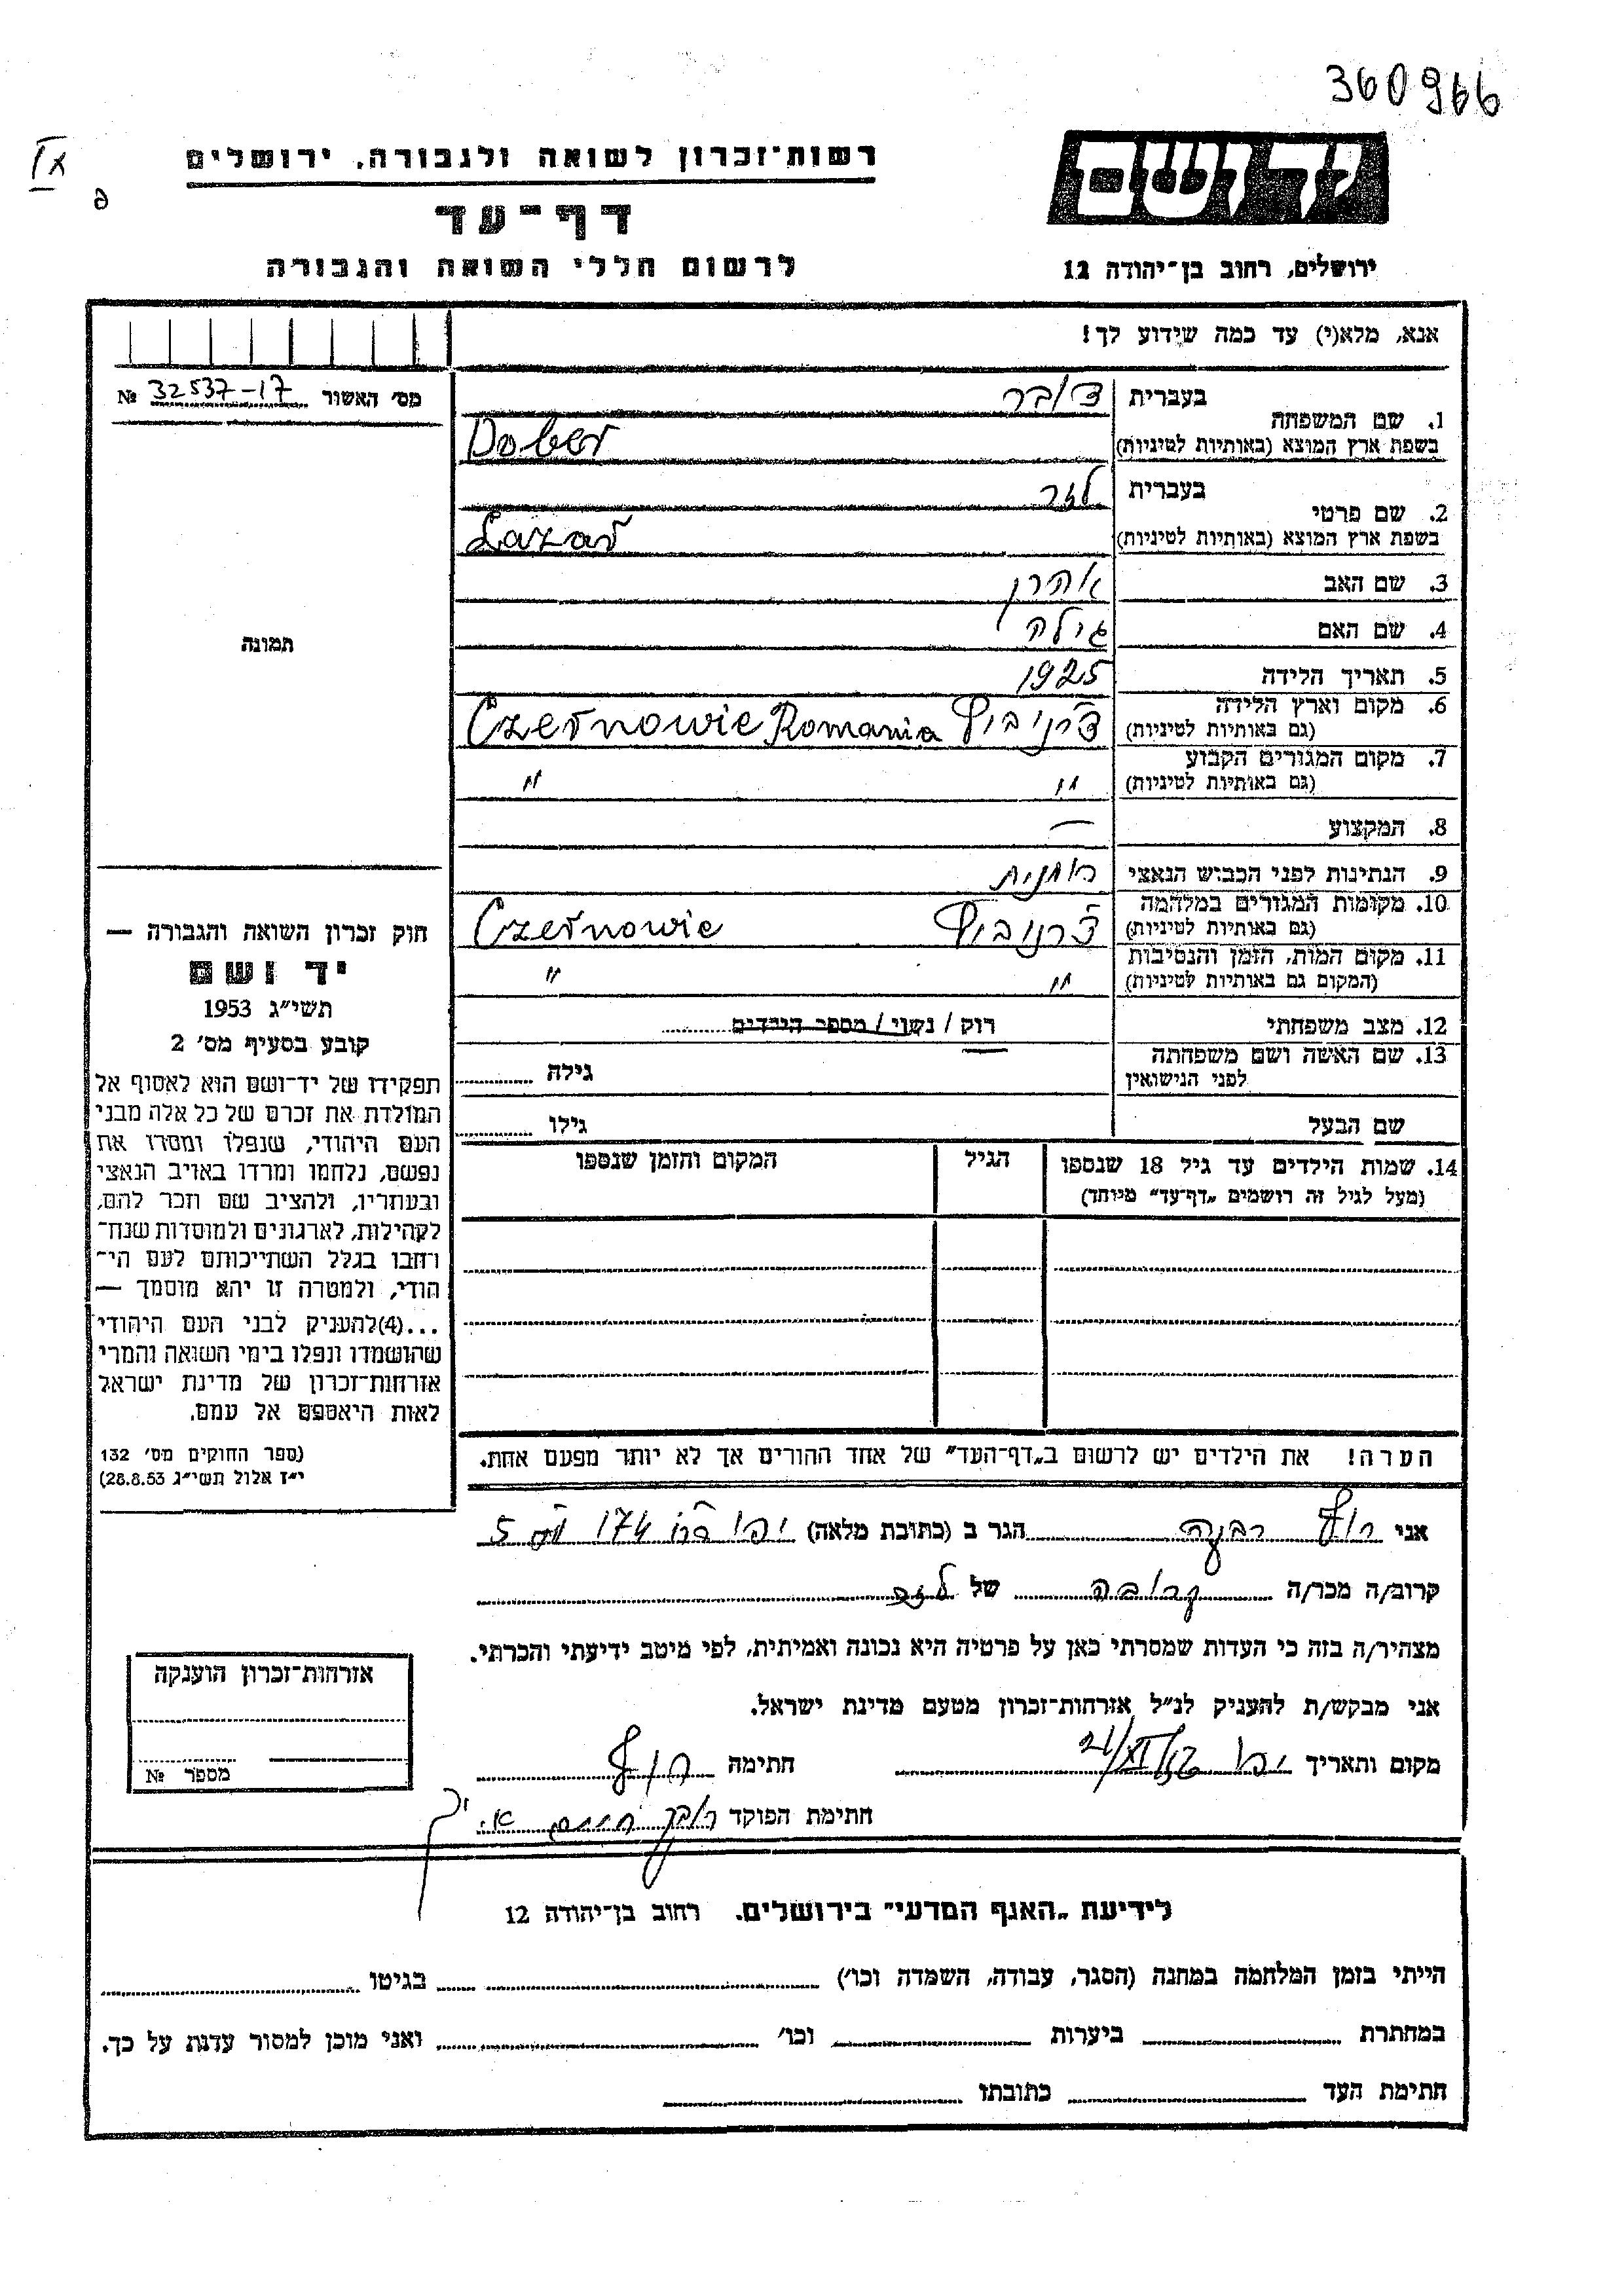 360966
IX
רשות־זכרון לשואה ולגבורה, ירושלים
יד ושם
דף־עד
לרשום חללי השואה והגבורה
ירושלים, רחוב בן־יהודה 12
אנא, מלא(י) עד כמה שידוע לך!
מס׳ האשור 32537-17 №
1. שם המשפחה
בעברית דובר
בשפת ארץ המוצא (באותיות לטיניות) Dober
2. שם פרטי
בעברית לזר
בשפת ארץ המוצא (באותיות לטיניות) Lazar
3. שם האב אהרן
4. שם האם גילה
5. תאריך הלידה 1925
6. מקום וארץ הלידה
(גם באותיות לטיניות) צ׳רנוביץ Czernowic Romania
7. מקום המגורים הקבוע
(גם באותיות לטיניות) " "
8. המקצוע —
9. הנתינות לפני הכבוש הנאצי רומנית
10. מקומות המגורים במלחמה
(גם באותיות לטיניות) צ׳רנוביץ Czernowic
11. מקום המות, הזמן והנסיבות
(המקום גם באותיות לטיניות) " "
12. מצב משפחתי רוק / נשוי / מספר הילדים
13. שם האשה ושם משפחתה
לפני הנישואין גילה
שם הבעל גילו
14. שמות הילדים עד גיל 18 שנספו הגיל המקום והזמן שנספו
(מעל לגיל זה רושמים „דף־עד״ מיוחד)
הערה! את הילדים יש לרשום ב„דף־העד״ של אחד ההורים אך לא יותר מפעם אחת.
תמונה
חוק זכרון השואה והגבורה —
יד ושם
תשי״ג 1953
קובע בסעיף מס׳ 2
תפקידו של יד־ושם הוא לאסוף אל
המולדת את זכרם של כל אלה מבני
העם היהודי, שנפלו ומסרו את
נפשם, נלחמו ומרדו באויב הנאצי
ובעוזריו, ולהציב שם וזכר להם,
לקהילות, לארגונים ולמוסדות שנח־
רחבו בגלל השתייכותם לעם הי־
הודי, ולמטרה זו יהא מוסמך —
...(4)להעניק לבני העם היהודי
שהושמדו ונפלו בימי השואה והמרי
אזרחות־זכרון של מדינת ישראל
לאות היאספם אל עמם.
(ספר החוקים מס׳ 132
י״ז אלול תשי״ג 28.8.53)
אני הגר ב (כתובת מלאה) יפו 174 5
קרוב/ה מכר/ה קרובה של לזר
מצהיר/ה בזה כי העדות שמסרתי כאן על פרטיה היא נכונה ואמיתית, לפי מיטב ידיעתי והכרתי.
אני מבקש/ת להעניק לנ״ל אזרחות־זכרון מטעם מדינת ישראל.
מקום ותאריך יפו חתימה
חתימת הפוקד
אזרחות־זכרון הוענקה
מספר №
לידיעת „האגף המדעי״ בירושלים. רחוב בן־יהודה 12
הייתי בזמן המלחמה במחנה (הסגר, עבודה, השמדה וכו׳) בגיטו
במחתרת ביערות וכו׳ ואני מוכן למסור עדות על כך.
חתימת העד כתובתו